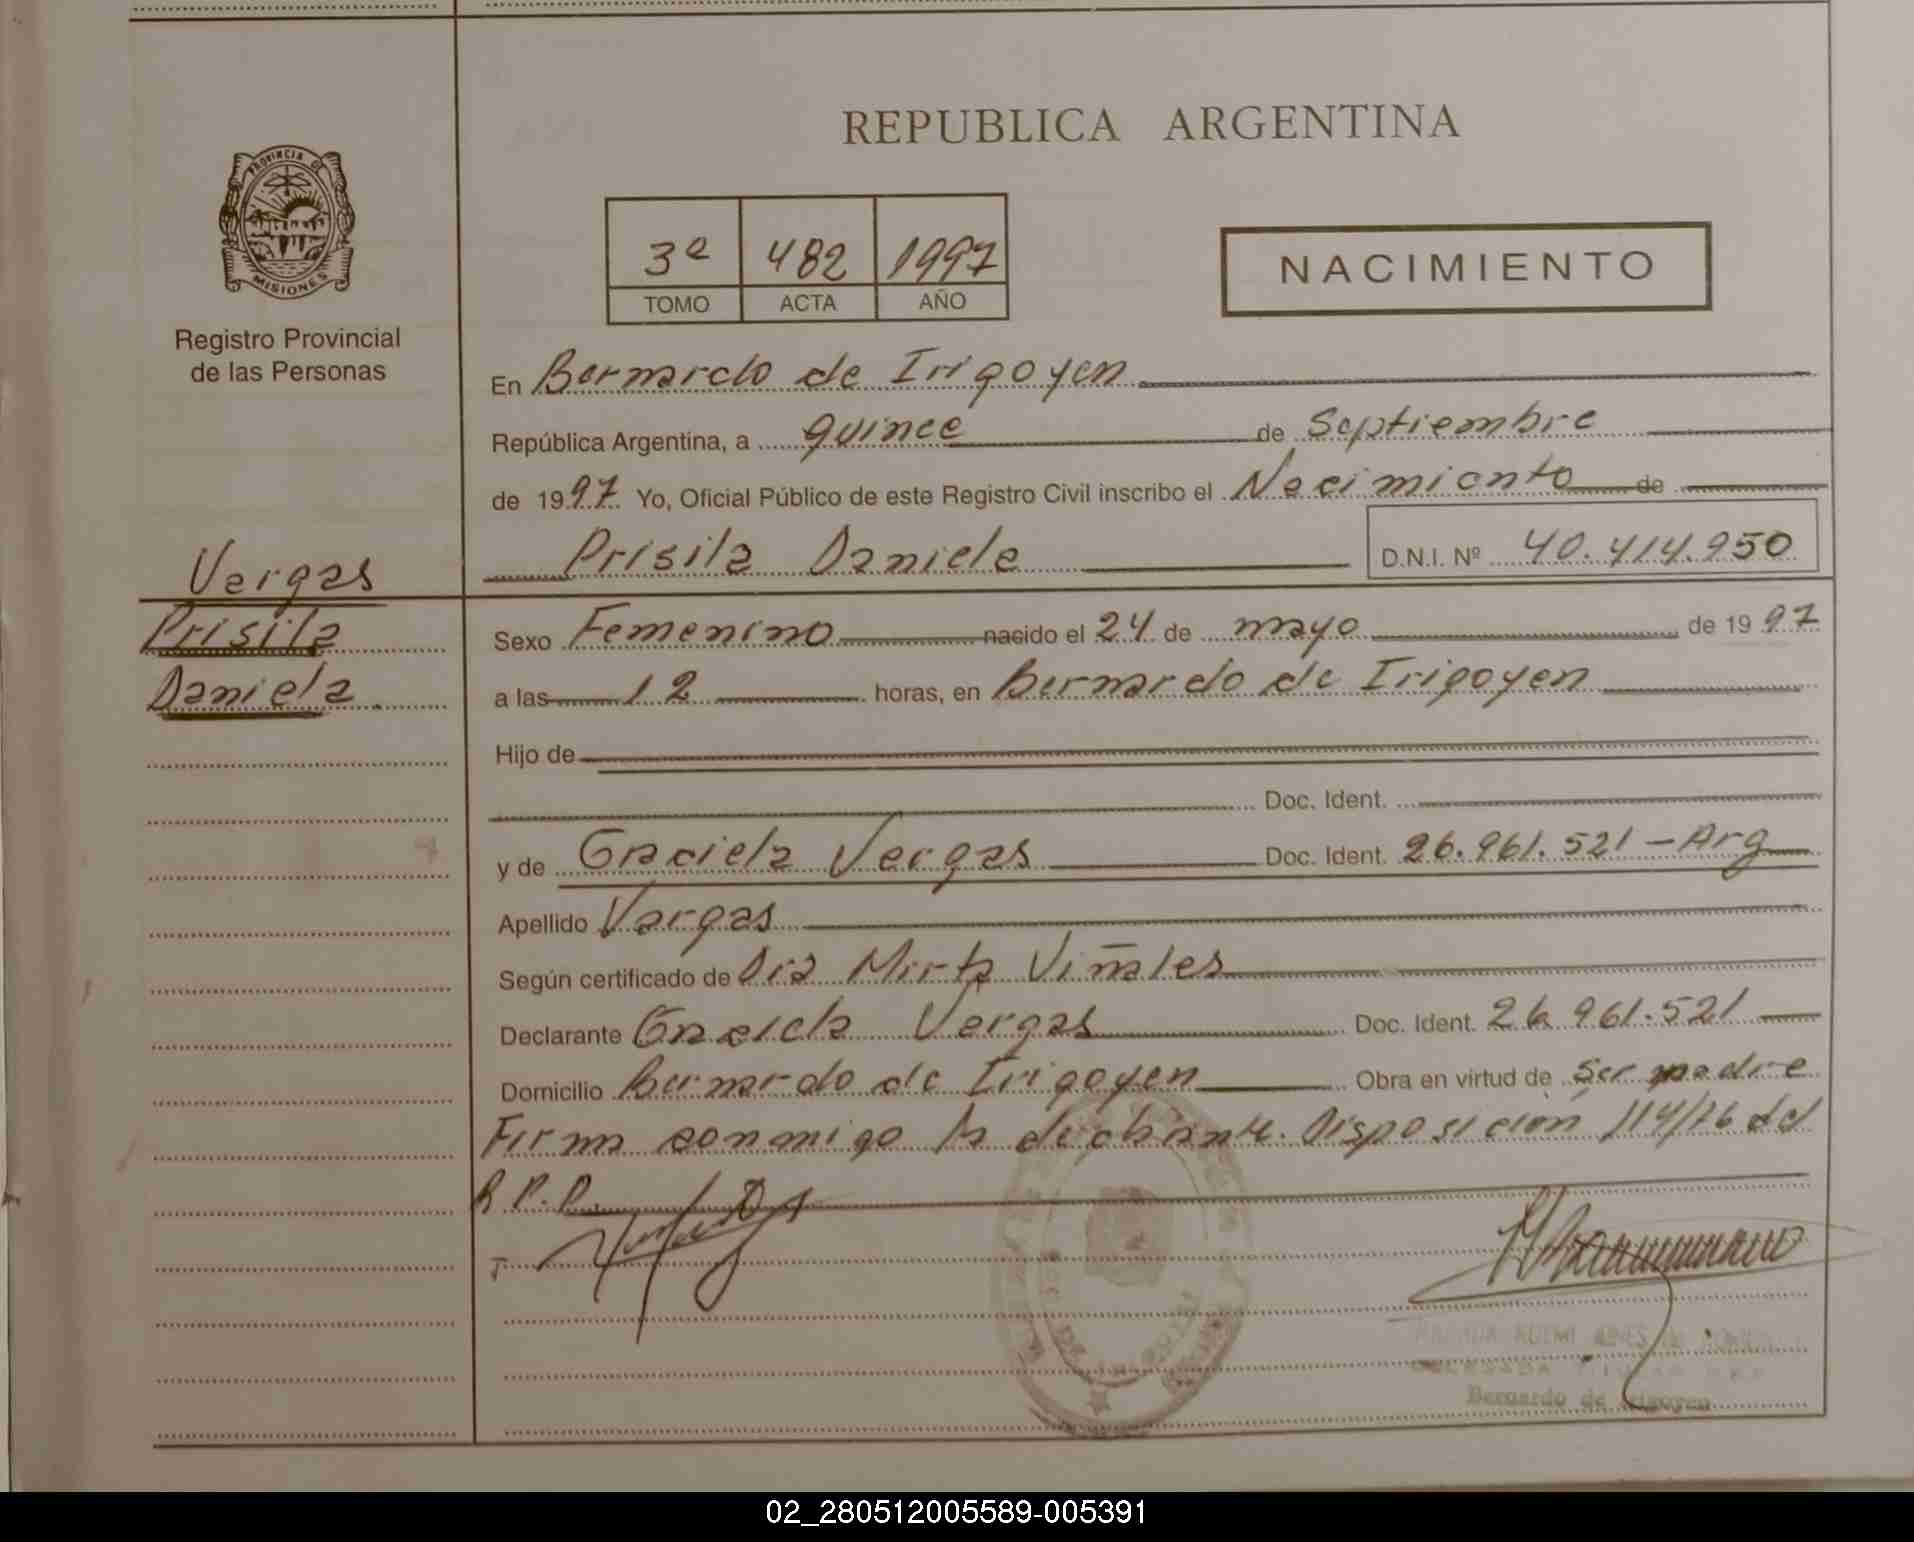 REPUBLICA ARGENTINA
PROVINCIA DE
MISIONES
Registro Provincial
de las Personas
3ª 482 1997
TOMO ACTA AÑO
NACIMIENTO
En Bernardo de Irigoyen
República Argentina, a quince de Septiembre
de 1997 Yo, Oficial Público de este Registro Civil inscribo el Nacimiento de
Prisila Daniela D.N.I. Nº 40.414.950
Vargas
Prisila
Daniela
Sexo Femenino nacido el 24 de mayo de 1997
a las 12 horas, en Bernardo de Irigoyen
Hijo de
Doc. Ident.
y de Graciela Vargas Doc. Ident. 26.961.521 - Arg
Apellido Vargas
Según certificado de Dra Mirta Viñales
Declarante Graciela Vargas Doc. Ident. 26 961.521
Domicilio Bernardo de Irigoyen Obra en virtud de ser madre
Firma conmigo la declarante. Disposición 114/76 del
R.P.P.
Bernardo de Irigoyen
02_280512005589-005391